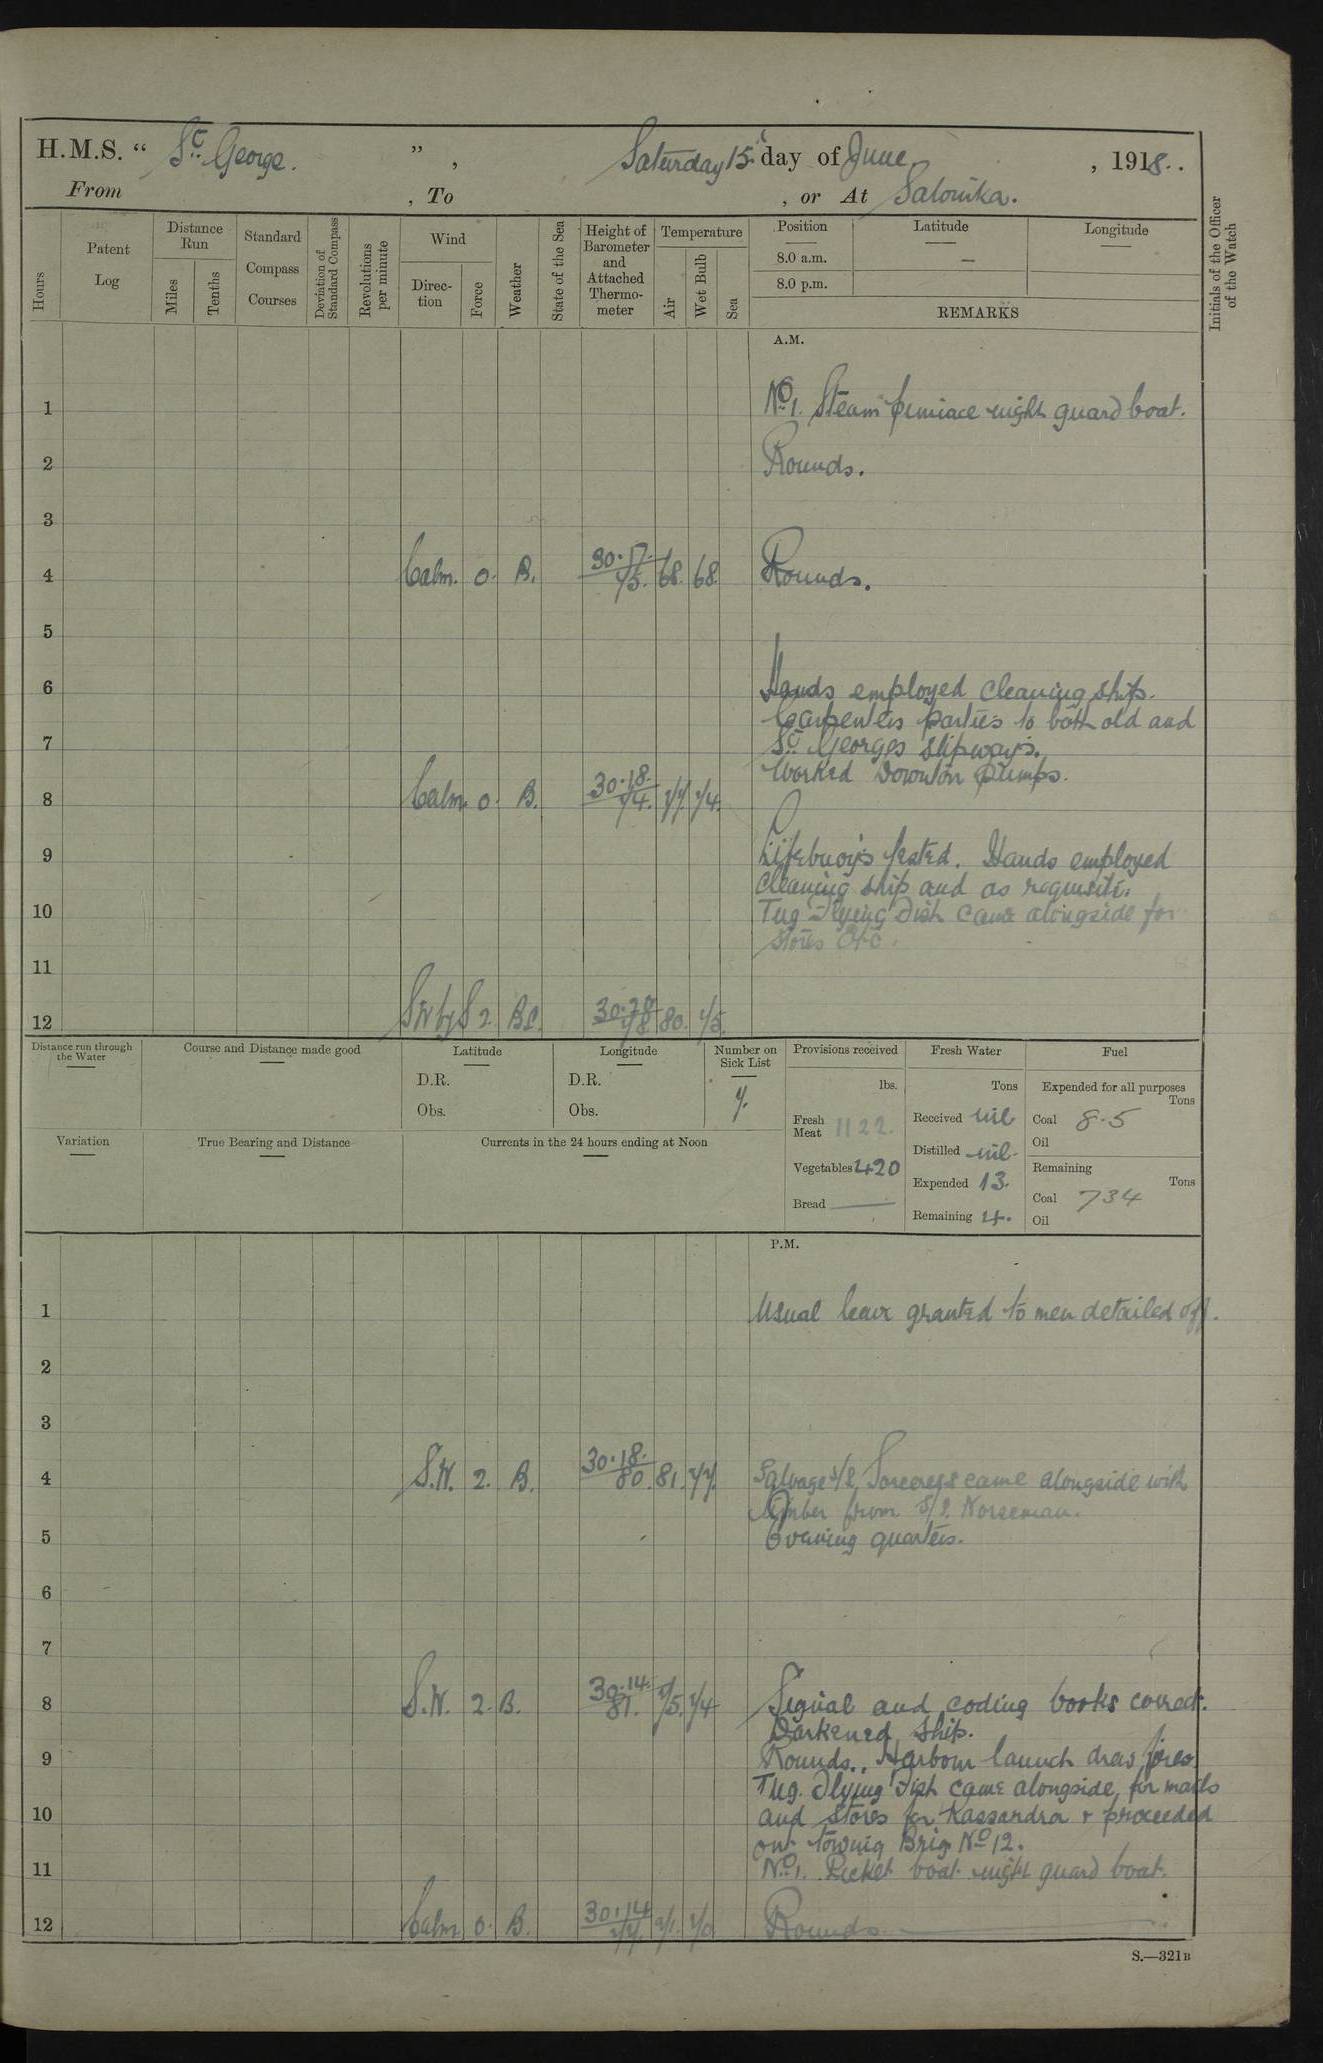 H.M.S. “ St. George. ” , Saturday 15 day of June , 1918.
From , To , or At Salonika.
Hours
Patent Log
Distance Run
Miles
Tenths
Standard Compass Courses
Deviation of Standard Compass
Revolutions per minute
Wind
Direction
Force
Weather
State of the Sea
Height of Barometer and Attached Thermometer
Temperature
Air
Wet Bulb
Sea
Position
Latitude
Longitude
8.0 a.m. —
8.0 p.m.
REMARKS
Initials of the Officer of the Watch
A.M.
1 No. 1. Steam pinnace night guard boat.
2 Rounds.
3
4 Calm. 0. B. 30.17. 75. 68. 68. Rounds.
5
6 Hands employed cleaning ship.
Carpenters parties to both old and
7 St. Georges slipways.
Worked Downton pumps.
8 Calm. 0. B. 30.18. 74. 77. 74.
9 Lifebuoys tested. Hands employed
cleaning ship and as requisite.
10 Tug Flying Fish came alongside for
stores etc.
11
12 SW by S 2. BC. 78 80. 75.
Distance run through the Water
Course and Distance made good
Latitude
D.R.
Obs.
Longitude
D.R.
Obs.
Number on Sick List
7.
Provisions received
lbs.
Fresh Meat 1122.
Vegetables 420
Bread —
Fresh Water
Tons
Received nil
Distilled nil.
Expended 13.
Remaining 4.
Fuel
Expended for all purposes
Tons
Coal 8.5
Oil
Remaining
Tons
Coal 734
Oil
Variation
True Bearing and Distance
Currents in the 24 hours ending at Noon
P.M.
1 Usual leave granted to men detailed off.
2
3
4 S.W. 2. B. 30.18. 80. 81. 77. Salvage S/S Sorceress came alongside with
timber from S/S. Norseman.
5 Evening quarters.
6
7
8 S.W. 2. B. 30.14. 81. 75. 74 Signal and coding books correct.
Darkened ship.
9 Rounds., Harbour launch drew fires
Tug. Flying Fish came alongside, for mails
10 and stores for Kassandra + proceeded
on towing Brig No 12.
11 No 1. Picket boat night guard boat.
12 Calm. 0. B. 30.14 77. 71. 70 Rounds
S.—321B